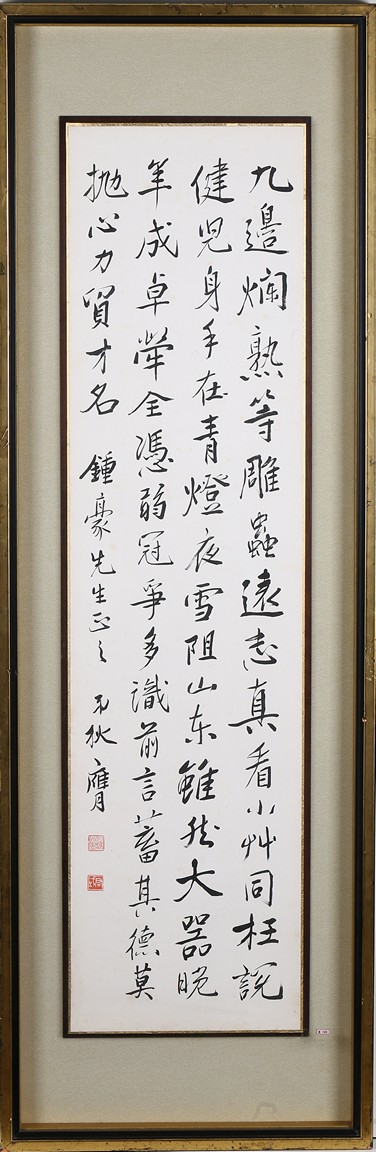 九邊爛熟等雕蟲遠志真看小艸同枉說
健兒身手在青燈夜雪阻山东雖然大器晚
年成卓犖全憑弱冠爭多識前言蓄其德莫
抛心力貿才名 鍾豪先生正之 不狄膺